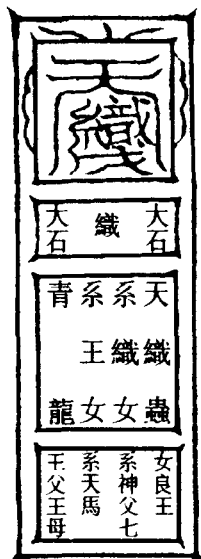 天
織
大石
織
大石
天織蟲
系織女
系王女
青龍
女良王
系神父七
系天馬
王父王母